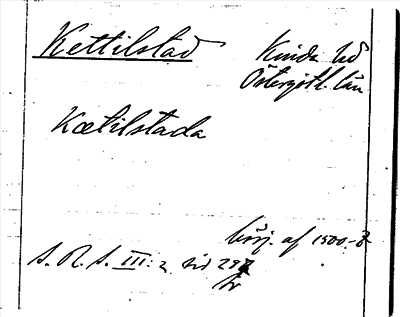 Kettilstad Kinda hd
Östergötl. län
Kætilstada
börj. af 1500-t.
S. R. S. III: 2 sid 297